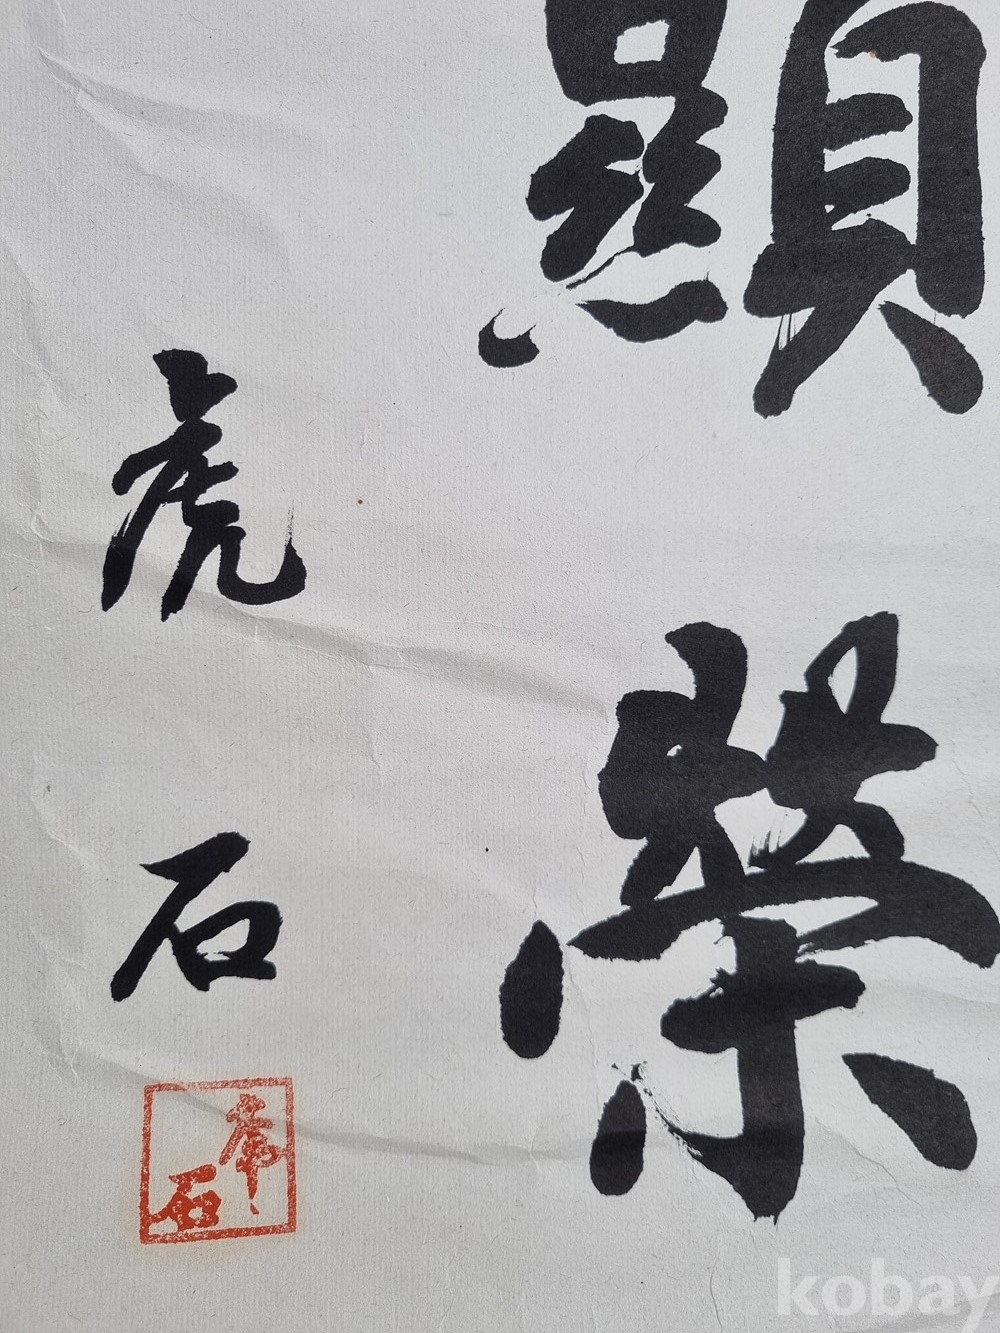 顯榮
虎石
虎石
kobay